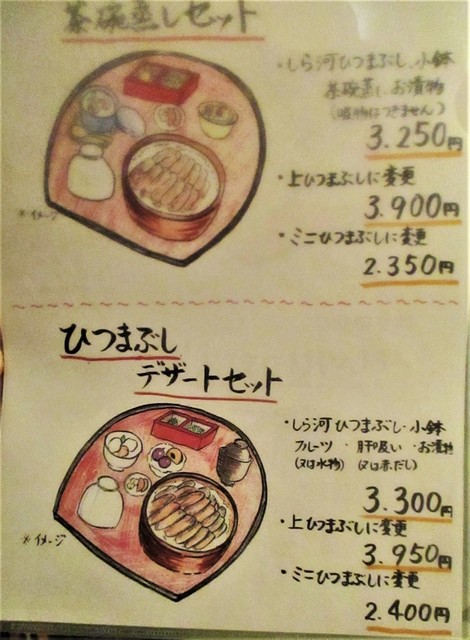 茶碗蒸しセット
・しら河ひつまぶし、小鉢
茶碗蒸し、お漬物
(吸物はつきません)
3.250円
・上ひつまぶしに変更
3.900円
※イメージ
・ミニひつまぶしに変更
2.350円
ひつまぶし
デザートセット
・しら河ひつまぶし・小鉢
フルーツ・肝吸い・お漬物
(又は氷物) (又は赤だし)
3.300円
・上ひつまぶしに変更
※イメージ
3.950円
・ミニひつまぶしに変更
2.400円